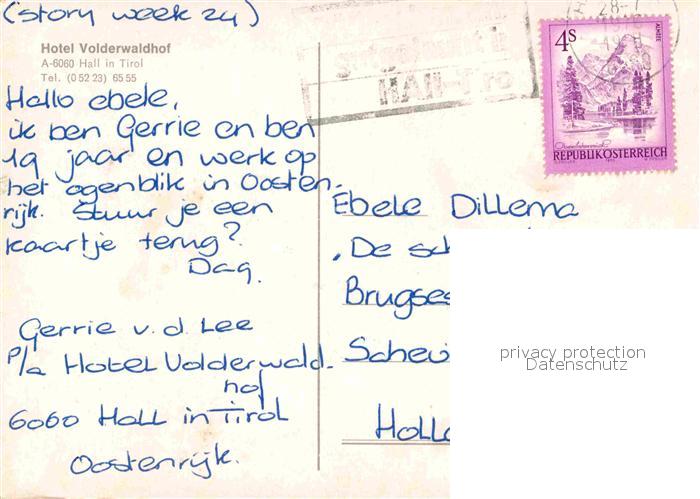 (story week 24)
Hotel Volderwaldhof
A-6060 Hall in Tirol
Tel. (0 52 23) 65 55
Hallo ebele,
ik ben Gerrie en ben
19 jaar en werk op
het ogenblik in Oosten-
rijk. Stuur je een
kaartje terug?
Dag.
Gerrie v.d. Lee
P/a Hotel Volderwald-
hof
6060 Hall in Tirol
Oostenrijk.
4S
ALMSEE
REPUBLIK ÖSTERREICH
Ebele Dillema
"De sch
Brugses
Schevi
Holla
privacy protection
Datenschutz